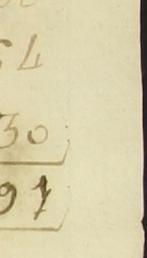 54
30
91